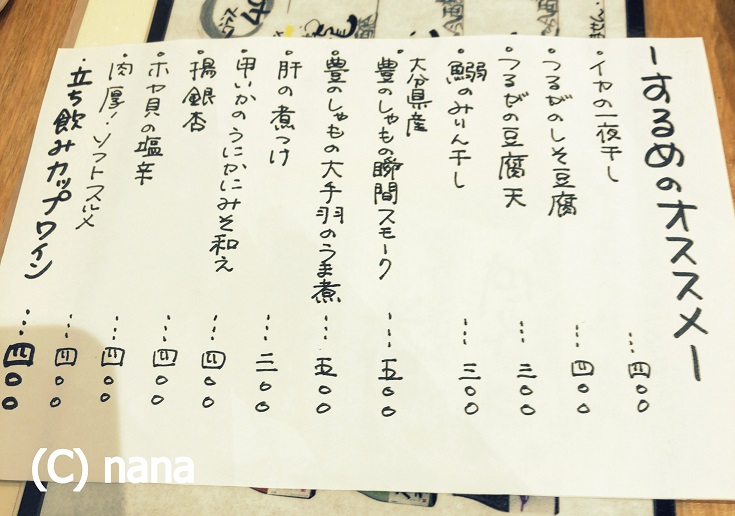 ーするめのオススメー
・イカの一夜干し …四〇〇
・つるがのしそ豆腐 …四〇〇
・つるがの豆腐天 …三〇〇
・鰯のみりん干し …三〇〇
・大分県産
豊のしゃもの瞬間スモーク …五〇〇
・豊のしゃもの大手羽のうま煮 …五〇〇
・肝の煮つけ …二〇〇
・甲いかのうにかにみそ和え …四〇〇
・揚銀杏 …四〇〇
・ホヤ貝の塩辛 …四〇〇
・肉厚!ソフトスルメ …四〇〇
・立ち飲みカップワイン …四〇〇
(C) nana